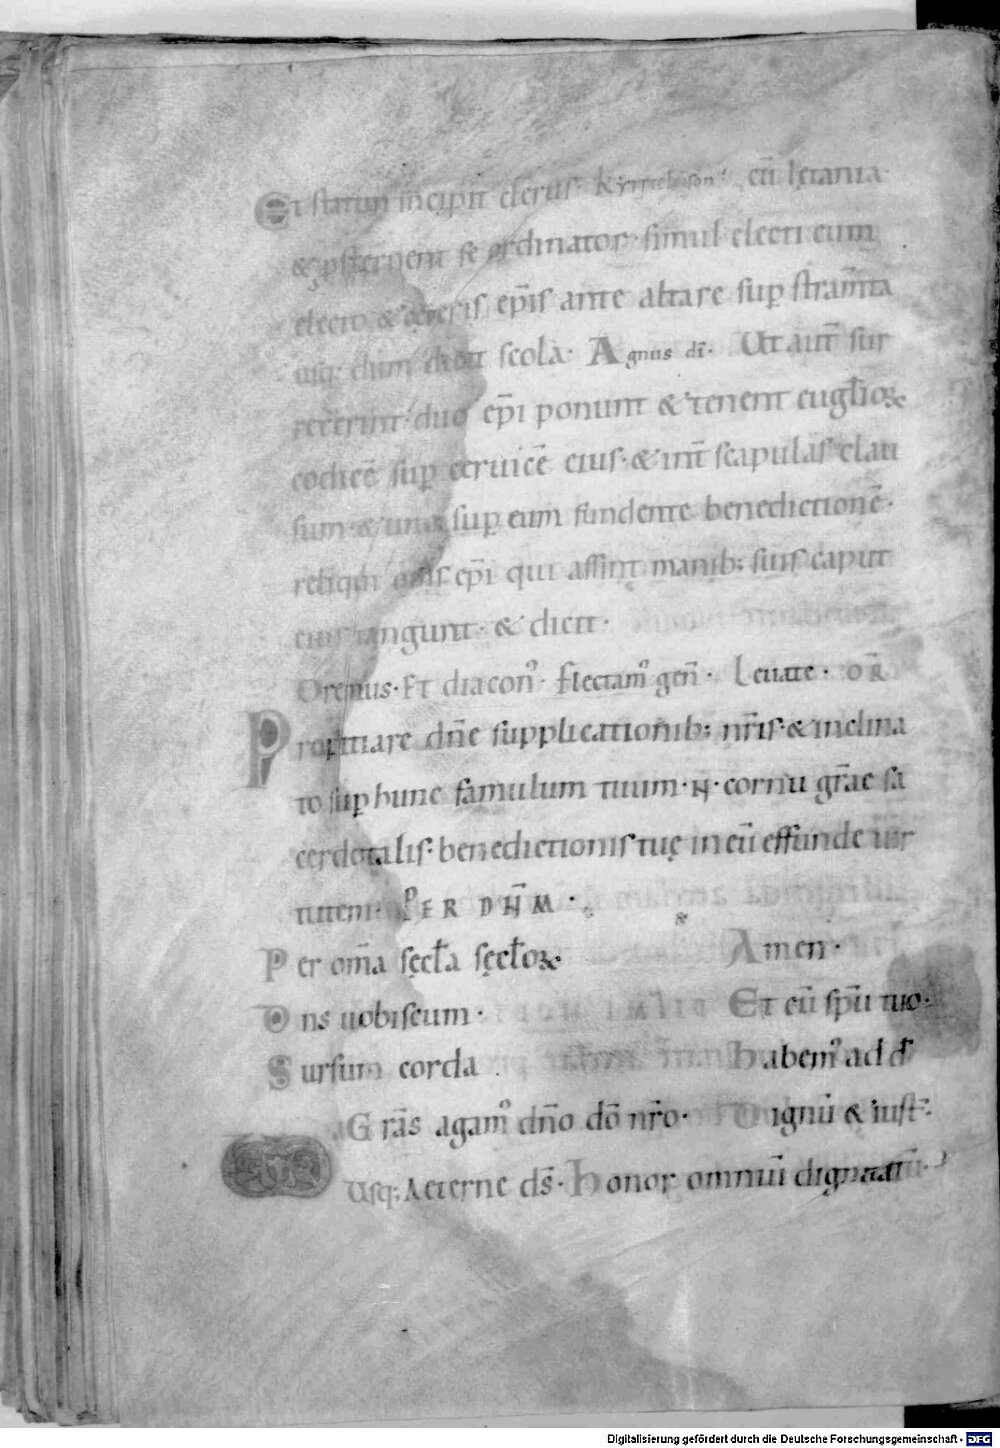 Et statim incipit clerus· Kyrrieleison· cū lętania
& ꝓsternent se ordinator· simul electi cum
electo & ceteris ep̄is ante altare sup̱ stram̄ta
usq; dum dicit scola· Agnus dī· Ut aut̄ sur
rexerint· duo ep̄i ponunt & tenent eugƚioꝝ
codicē sup̱ ceruicē eius· & int̄ scapulas clau
sum· & uno sup̱ eum fundente benedictionē·
reliqui om̄s ep̄i qui assunt manib; suis caput
eius tangunt· & dicit·
Oremus· Et diacon᾿· flectam᾿ gen̄· Leuate· OR̄
Propitiare dn̄e supplicationib; nr̄is· & inclina
to sup̱ hunc famulum tuum· N̄· cornu gr̄ae sa
cerdotalis· benedictionis tuę in eū effunde uir
tutem· PER DN̄M·
Per om̄a sęcƚa sęcƚoꝝ· Amen·
Dns uobiscum· Et cū sp̄u tuo·
Sursum corda Habem᾿ ad d̄
Gr̄as agam᾿ dn̄o dō nr̄o· Dignū & iust̄·
Usq; Aeterne ds̄· Honor omniū dignitatū·
Digitalisierung gefördert durch die Deutsche Forschungsgemeinschaft - DFG